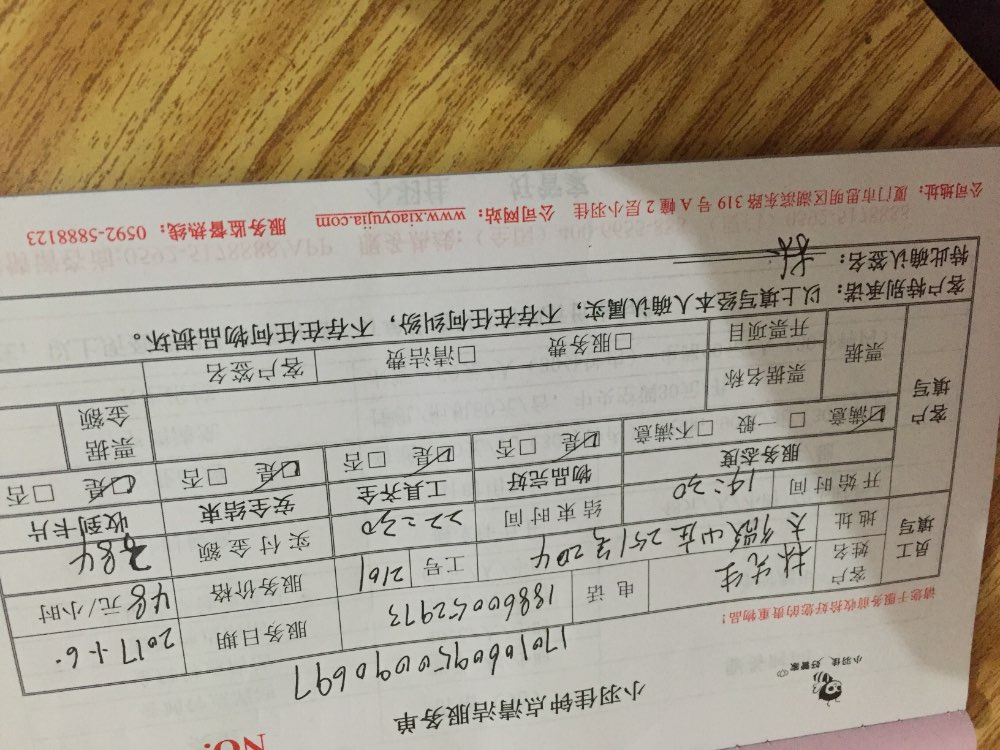 NO:
小羽佳 好管家
小羽佳钟点清洁服务单
17010609500090697
请您于服务前收拾好您的贵重物品！
员工填写 客户姓名 林先生 电话 18860052973 服务日期 2017.1.6.
地址 251号204 工号 2161 服务价格 48元/小时
开始时间 14:30 结束时间 22:30 实付金额 384
客户填写 服务态度 物品完好 工具齐全 安全结束 收到卡片
☑满意 □一般 □不满意 ☑是 □否 ☑是 □否 ☑是 □否 ☑是 □否
票据 票据名称 票据金额
开票项目 □服务费 □清洁费 客户签名
客户特别承诺：以上填写经本人确认属实，不存在任何纠纷，不存在任何物品损坏。
特此确认签名：
公司地址：厦门市思明区湖滨东路319号A幢2层小羽佳 公司网站：www.xiaoyujia.com 服务监督热线：0592-5888123